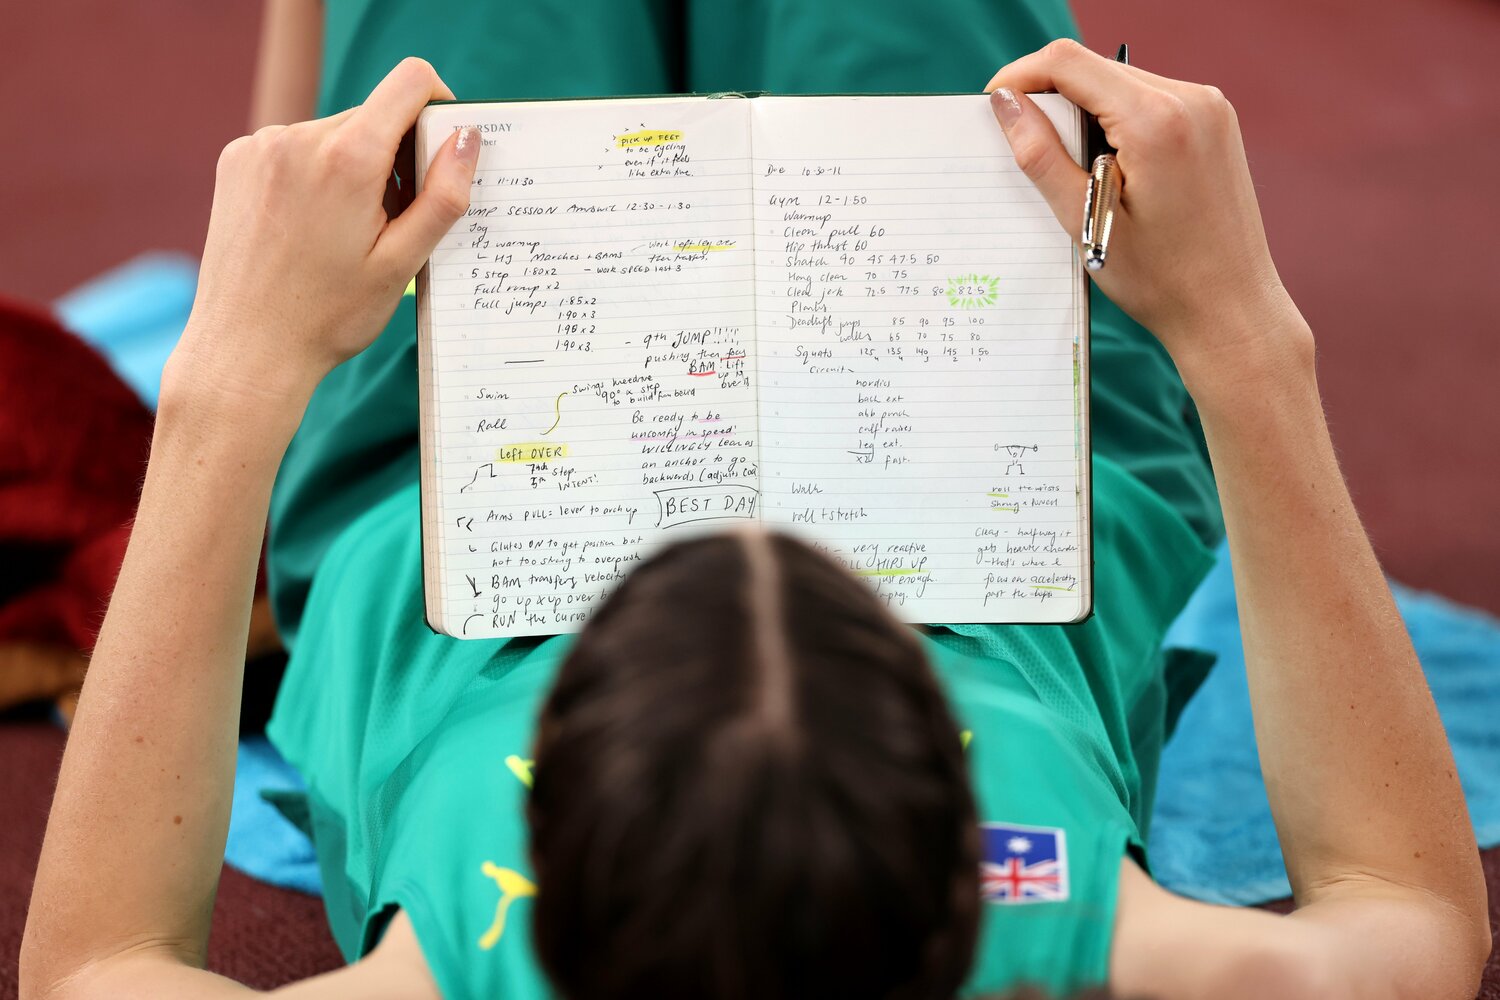 THURSDAY
PICK UP FEET
to be cycling
even if it feels
like extra
11-11.30
JUMP SESSION 12.30 - 1.30
Jog
HJ warmup
HJ Marches + BAMS
work left leg over
5 step 1.80x2 - work SPEED last 3
Full runup x2
Full jumps 1.85x2
1.90x3
1.90x3
- 9th JUMP!!!!!
pushing then focus
BAM! Lift
up
Swim
Roll
Swings kneedrive
90° a step
to build
Be ready to be
uncomfy in speed!
WILLINGLY lean as
an anchor to go
backwards (adjusts
Left OVER
step.
5th INTENT!
BEST DAY
Arms PULL = lever to arch up
Glutes ON to get position but
not too strong to overpush
BAM transfers velocity
go up & up over
RUN the curve
10.30-11
GYM 12-1.50
Warmup
Clean pull 60
Hip thrust 60
Snatch 40 45 47.5 50
Hang clean 70 75
Clean jerk 72.5 77.5 80 82.5
Planks
Deadlift jumps 85 90 95 100
walks 65 70 75 80
Squats 125 135 140 145 150
Circuit
nordics
back ext
abb punch
calf raises
leg ext.
x2 fast.
Walk
roll + stretch
roll the wrists
Strong & PUNCH
- very reactive
HIPS UP
just enough.
Clean - halfway it
gets heavier & harder
- that's where I
focus on accelerating
past the hips